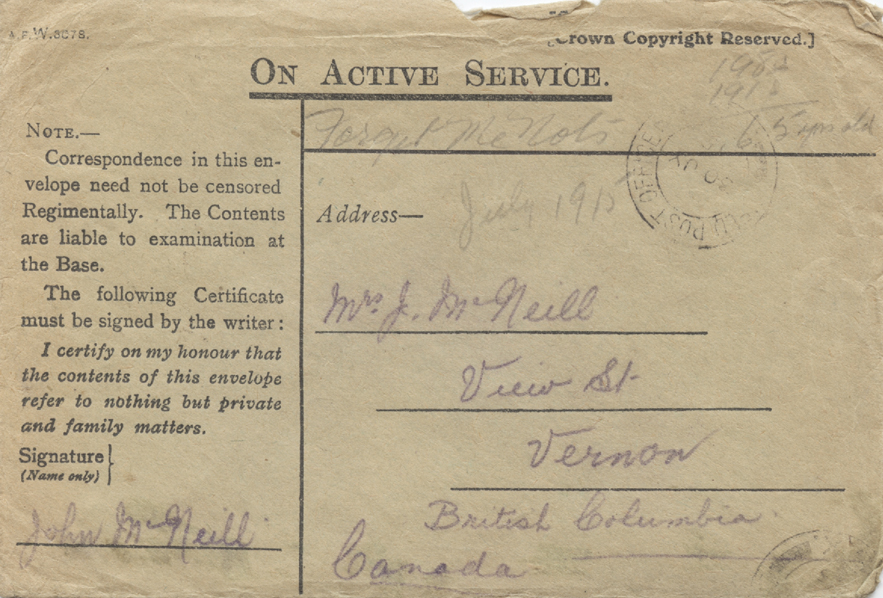 A.F.W.3078.
[Crown Copyright Reserved.]
ON ACTIVE SERVICE.
1968
1915
53 yrs old
Forget Me Nots
NOTE.—
Correspondence in this en-
velope need not be censored
Regimentally. The Contents
are liable to examination at
the Base.
The following Certificate
must be signed by the writer:
I certify on my honour that
the contents of this envelope
refer to nothing but private
and family matters.
Signature}
(Name only)
John McNeill
FIELD POST OFFICE
Address—
July 1915
Mrs. J. McNeill
View St.
Vernon
British Columbia
Canada